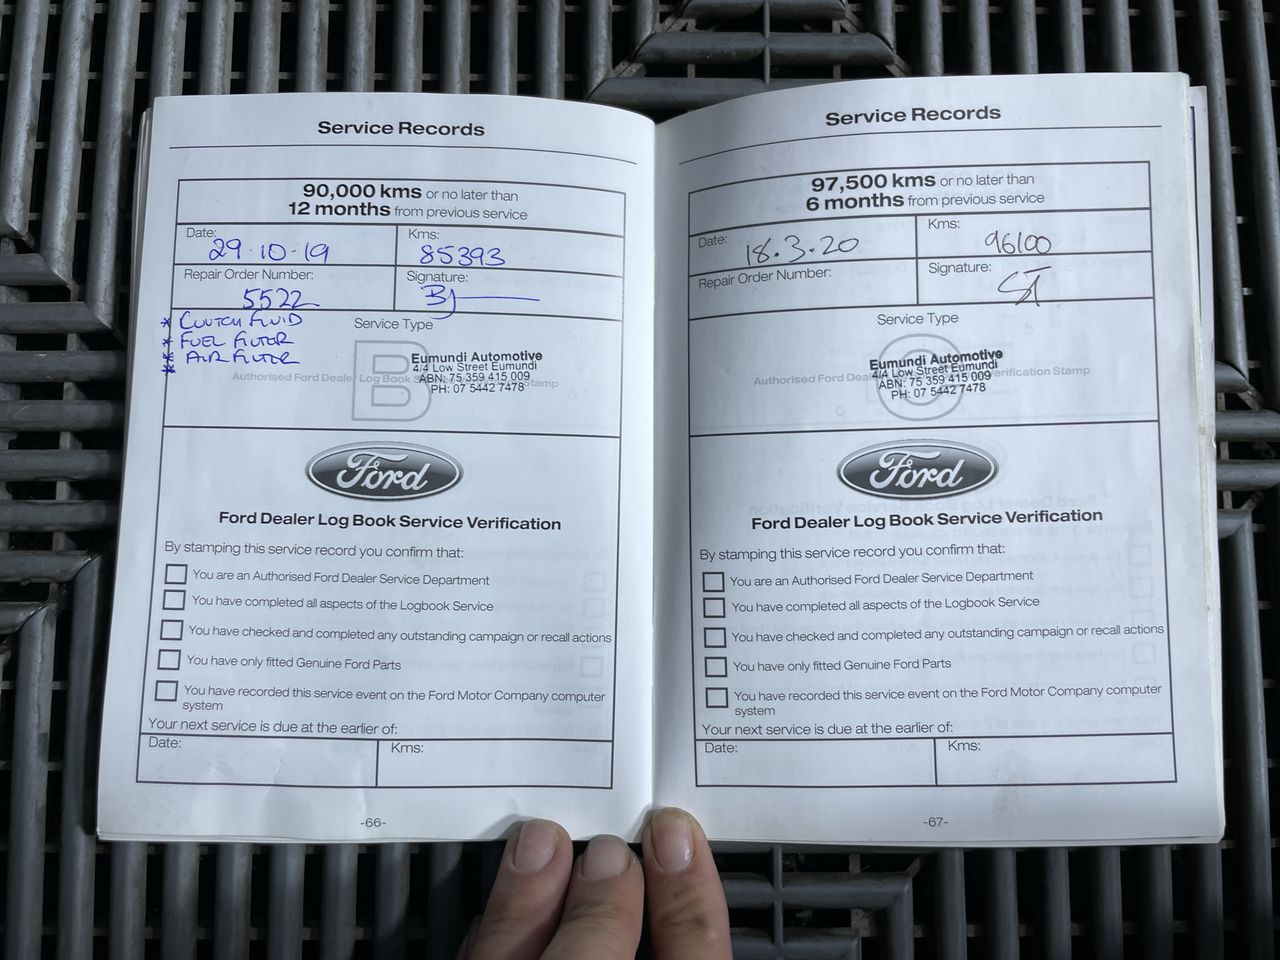 Service Records
90,000 kms or no later than
12 months from previous service
Date:
29.10.19
Kms:
85393
Repair Order Number:
5522
Signature:
* CLUTCH FLUID
* FUEL FILTER
* AIR FILTER
*
Service Type
B
Authorised Ford Dealer Log Book Stamp
Eumundi Automotive
4/4 Low Street Eumundi
ABN: 75 359 415 009
PH: 07 5442 7478
Ford
Ford Dealer Log Book Service Verification
By stamping this service record you confirm that:
You are an Authorised Ford Dealer Service Department
You have completed all aspects of the Logbook Service
You have checked and completed any outstanding campaign or recall actions
You have only fitted Genuine Ford Parts
You have recorded this service event on the Ford Motor Company computer
system
Your next service is due at the earlier of:
Date:
Kms:
-66-
Service Records
97,500 kms or no later than
6 months from previous service
Date:
18.3.20
Kms:
96100
Repair Order Number:
Signature:
ST
Service Type
Authorised Ford Verification Stamp
Eumundi Automotive
4/4 Low Street Eumundi
ABN: 75 359 415 009
PH: 07 5442 7478
Ford
Ford Dealer Log Book Service Verification
By stamping this service record you confirm that:
You are an Authorised Ford Dealer Service Department
You have completed all aspects of the Logbook Service
You have checked and completed any outstanding campaign or recall actions
You have only fitted Genuine Ford Parts
You have recorded this service event on the Ford Motor Company computer
system
Your next service is due at the earlier of:
Date:
Kms:
-67-